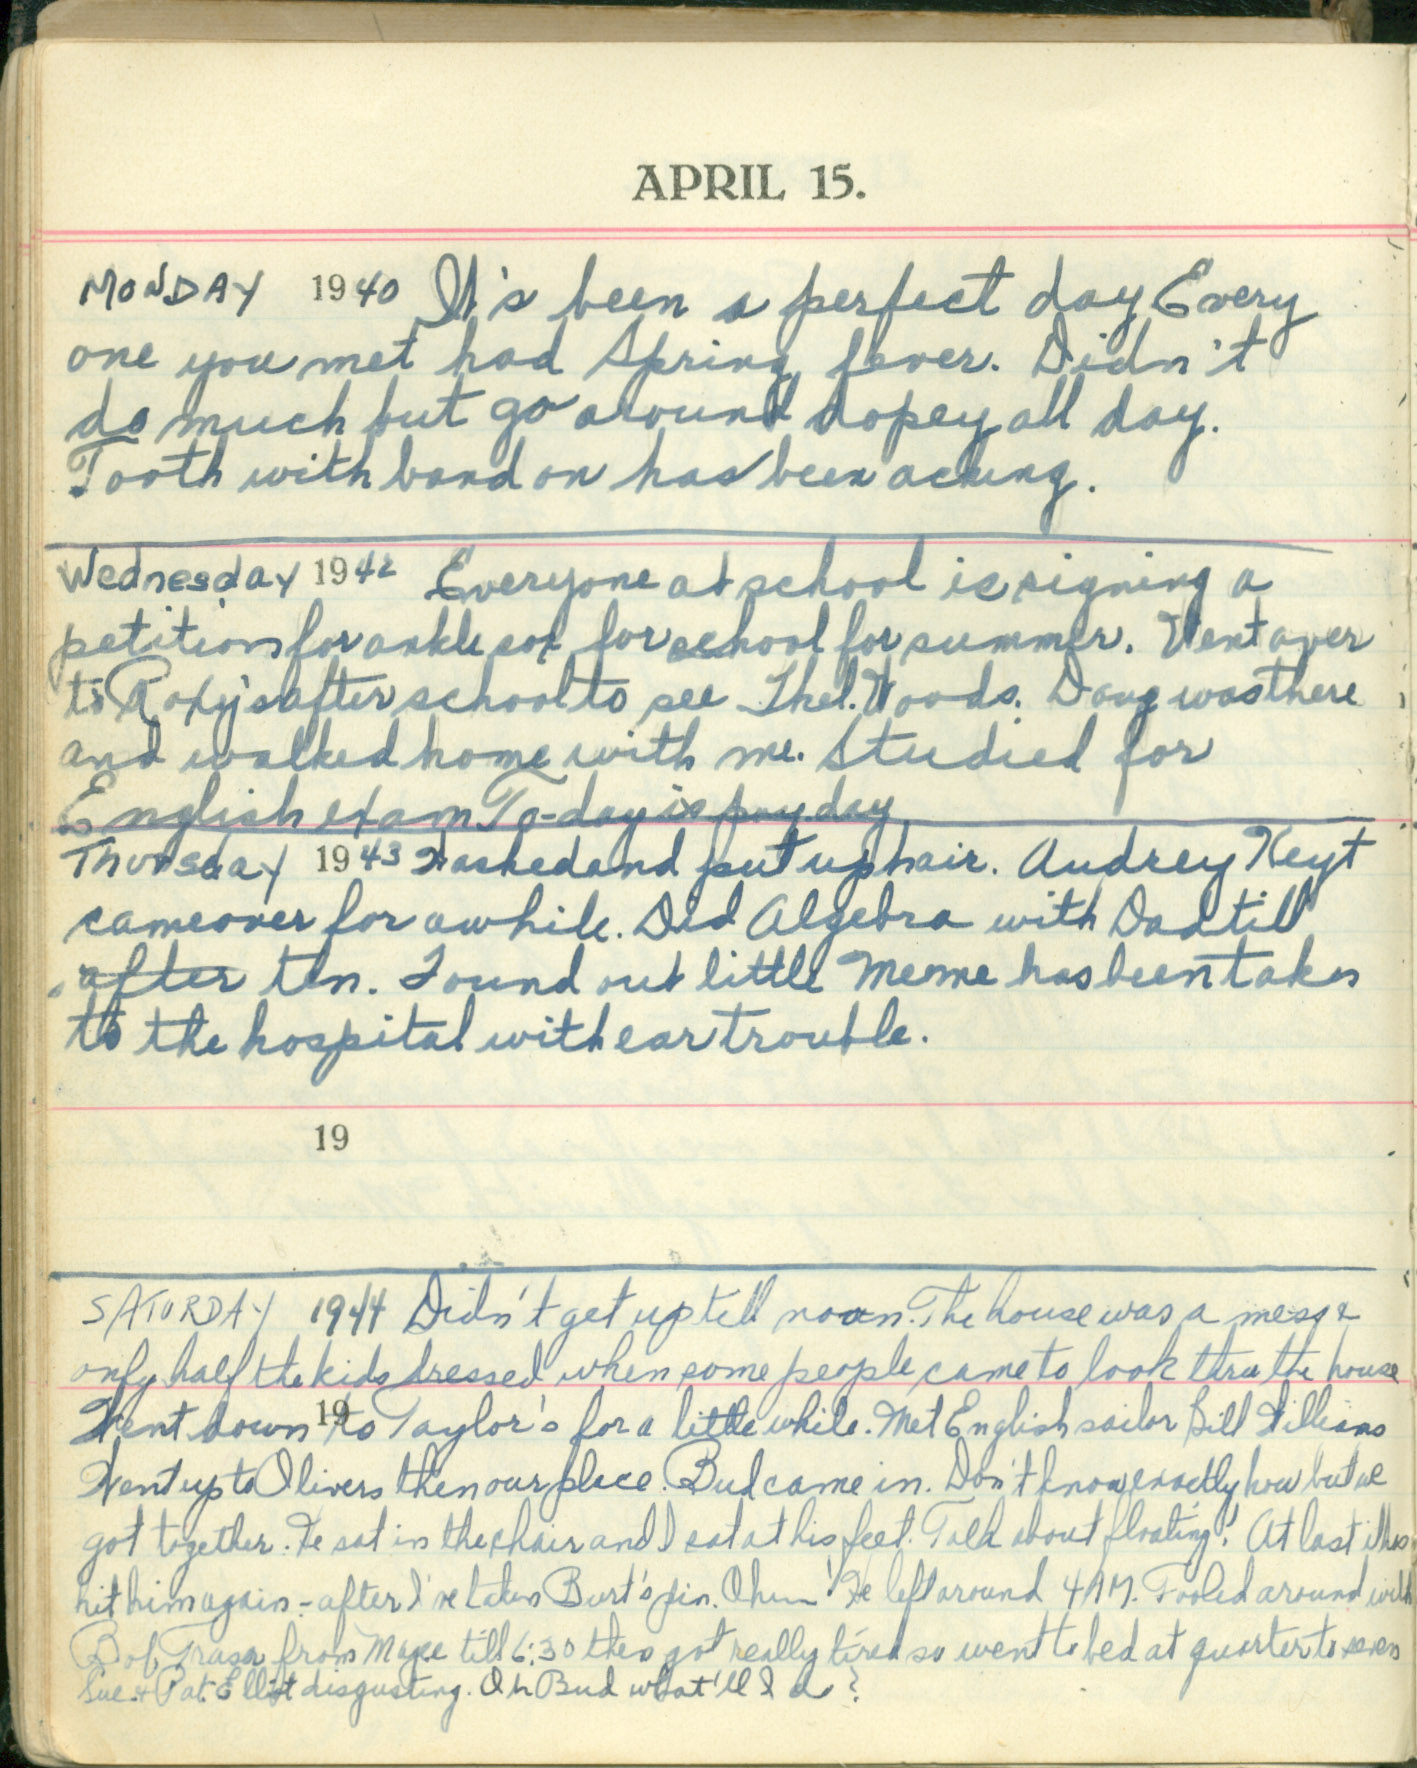 APRIL 15.
MONDAY 1940 It's been a perfect day Every
one you met had Spring fever. Didn't
do much but go around dopey all day.
Tooth with band on has been acking.
Wednesday 1942 Everyone at school is signing a
petition for ankle sox for school for summer. Went over
to Roxy's after school to see Thel. Woods. Doug was there
and walked home with me. Studied for
English exam To-day is pay day
Thursday 1943 Washed and put up hair. Audrey Keyt
came over for awhile. Did Algebra with Dad till
after ten. Found out little Meme has been taken
to the hospital with ear trouble.
19
SATURDAY 1944 Didn't get up till noon. The house was a mess &
only half the kids dressed when some people came to look thru the house
19
Went down to Taylor's for a little while. Met English sailor Bill Williams
Went up to Olivers then our place. Bud came in. Don't know exactly how but we
got together. He sat in the chair and I sat at his feet. Talk about floating! At last it has
hit him again - after I've taken Burt's pin. He left around 4 AM. Fooled around with
Bob from till 6:30 then got really tired so went to bed at quarter to seven
Sue & Pat Elliot disgusting. Oh Bud what'll I do?